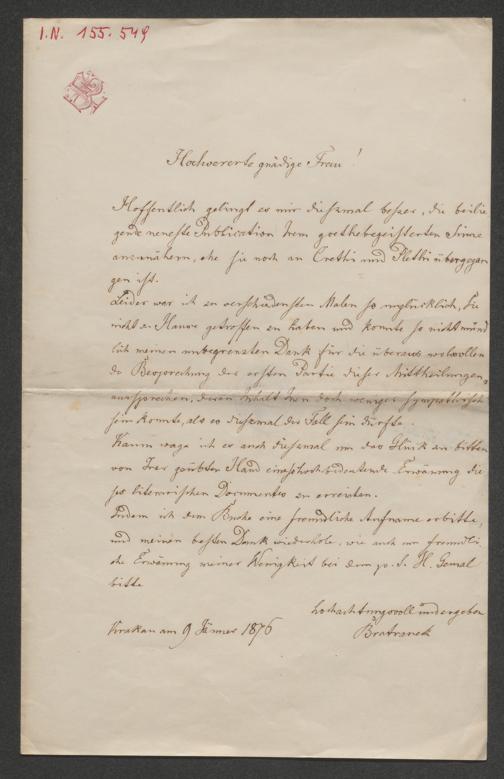 I.N. 155.549
Hochvererte gnädige Frau!
Hoffentlich gelingt es mir dießmal besser, die beilie
gende neueste Publication Irem goethebegeisterten Sinne
anzunähern, ehe sie noch an Crethi und Plethi übergegan
gen ist.
Leider war ich zu verschiedensten Malen so unglücklich, Sie
nicht zu Hause getroffen zu haben und konnte so nicht münd
lich meinen unbegrenzten Dank für die überaus wolwollen
de Besprechung der ersten Partie dieser Mittheilungen,
aussprechen, deren Inhalt Inen doch weniger sympathisch
sein konnte, als es dießmal der Fall sein dürfte.
Kaum wage ich es auch dießmal um das Glück zu bitten
von Irer geübten Hand eine hochbedeutende Erwänung die
ses literarischen Documentes zu erreichen.
Indem ich dem Buche eine freundliche Aufname erbitte,
und meinen besten Dank wiederhole, wie auch um freundli
che Erwänung meiner Wenigkeit bei dem H. Gemal
bitte
hochachtungsvoll und ergeben
Krakau am 9 Jänner 1876
Bratranek